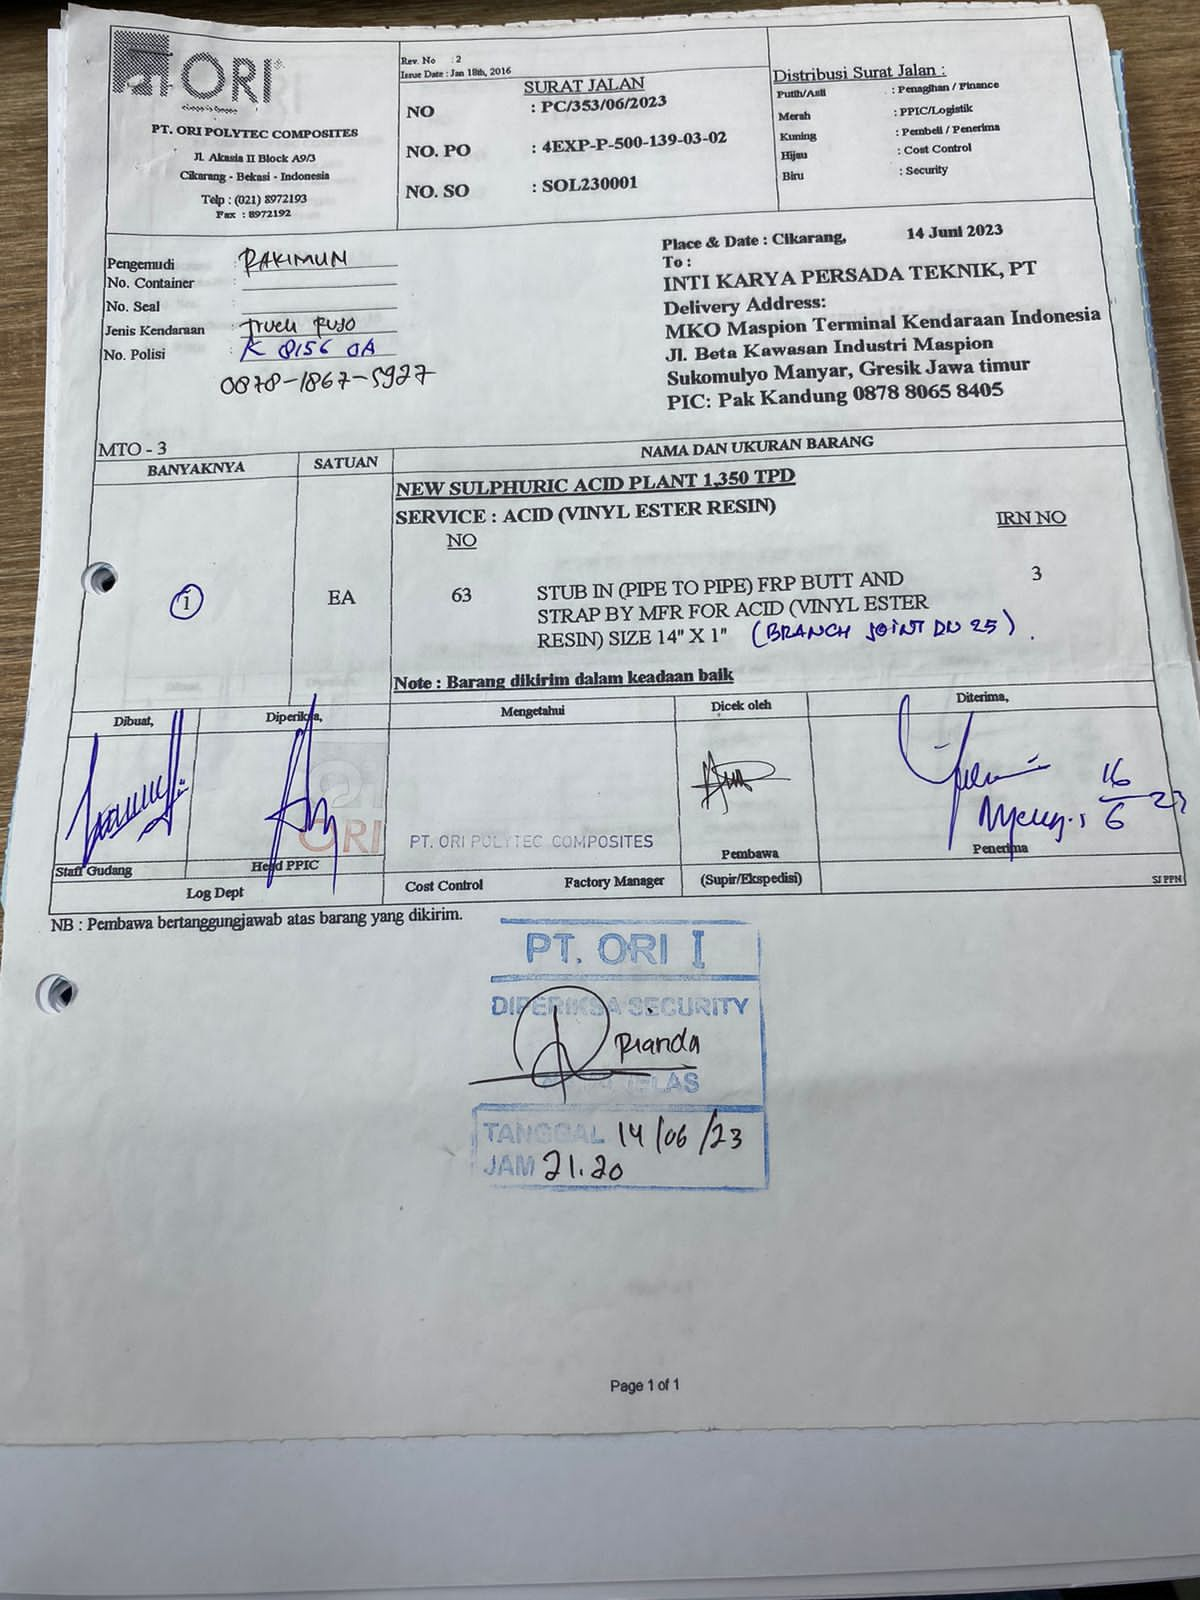 ORI
PT. ORI POLYTEC COMPOSITES
Jl. Akasia II Block A9/3
Cikarang - Bekasi - Indonesia
Telp : (021) 8972193
Fax : 8972192
Rev. No : 2
Issue Date : Jan 18th, 2016
SURAT JALAN
NO : PC/353/06/2023
NO. PO : 4EXP-P-500-139-03-02
NO. SO : SOL230001
Distribusi Surat Jalan :
Putih/Asli : Penagihan / Finance
Merah : PPIC/Logistik
Kuning : Pembeli / Penerima
Hijau : Cost Control
Biru : Security
Pengemudi : RAKIMUN
No. Container :
No. Seal :
Jenis Kendaraan : Truck Fuso
No. Polisi : K 8156 OA
0878-1867-5927
Place & Date : Cikarang, 14 Juni 2023
To :
INTI KARYA PERSADA TEKNIK, PT
Delivery Address:
MKO Maspion Terminal Kendaraan Indonesia
Jl. Beta Kawasan Industri Maspion
Sukomulyo Manyar, Gresik Jawa timur
PIC: Pak Kandung 0878 8065 8405
MTO - 3
BANYAKNYA SATUAN NAMA DAN UKURAN BARANG
NEW SULPHURIC ACID PLANT 1,350 TPD
SERVICE : ACID (VINYL ESTER RESIN)
NO IRN NO
1 EA 63 STUB IN (PIPE TO PIPE) FRP BUTT AND 3
STRAP BY MFR FOR ACID (VINYL ESTER
RESIN) SIZE 14" X 1" (BRANCH JOINT DN 25).
Note : Barang dikirim dalam keadaan baik
Dibuat, Diperiksa, Mengetahui Dicek oleh Diterima,
16/6 23
ORI
PT. ORI POLYTEC COMPOSITES
Staff Gudang Head PPIC Pembawa Penerima
Log Dept Cost Control Factory Manager (Supir/Ekspedisi) SJ PPN
NB : Pembawa bertanggungjawab atas barang yang dikirim.
PT. ORI I
DIPERIKSA SECURITY
Rianda
TANGGAL 14/06/23
JAM 21.20
Page 1 of 1